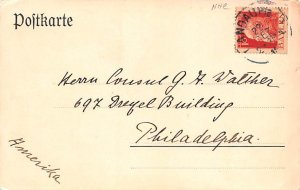 Postkarte
Herrn Consul G. A. Walther
697 Drexel Building
Philadelphia.
Amerika